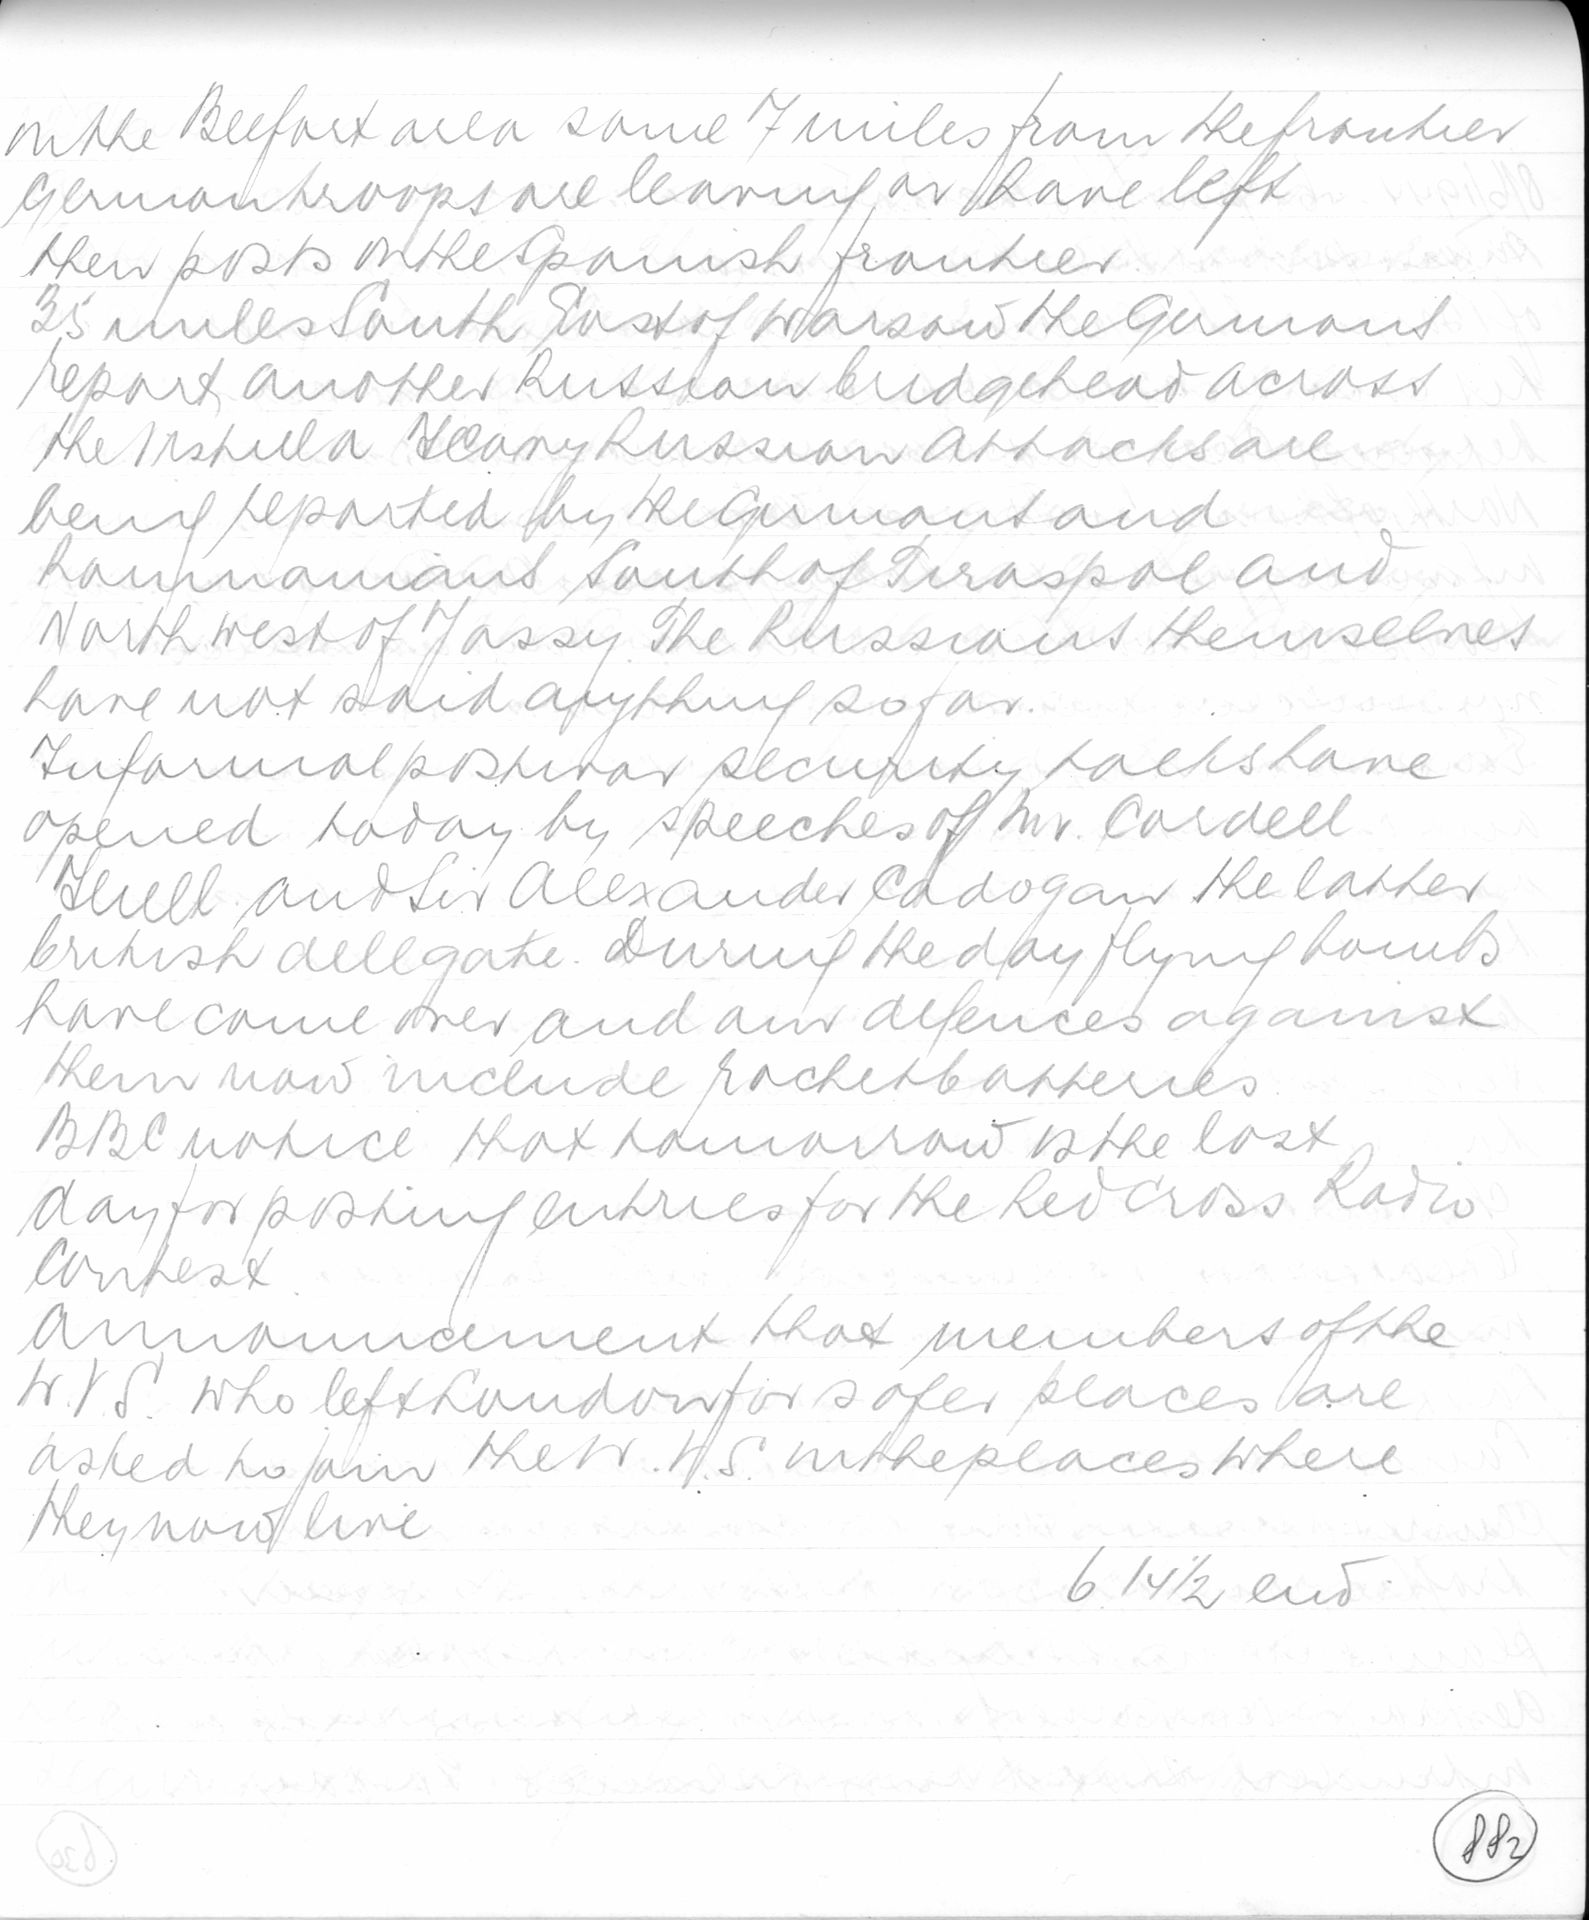 on the Bellfort area some 7 miles from the frontier
German troops are leaving or have left
their posts on the Spanish frontier.
35 miles South East of Warsaw the Germans
report another Russian bridgehead across
the Vistula Heavy Russian attacks are
being reported by the Germans and
Roumanians South of Tiraspol and
North west of Jassy. The Russians themselves
have not said anything so far.
Informal postwar security talks have
opened today by speeches of Mr. Cordell
Hull and Sir Alexander Cadogan the latter
british dellgate. During the day flying bombs
have come over and our defences against
them now include rocket batteries
BBC notice that tomorrow is the last
day for posting entries for the Red Cross Radio
Contest.
Announcement that members of the
W.V.S. who left London for safer places are
asked to join the W.V.S. in the places where
they now live
6.14½ end.
882